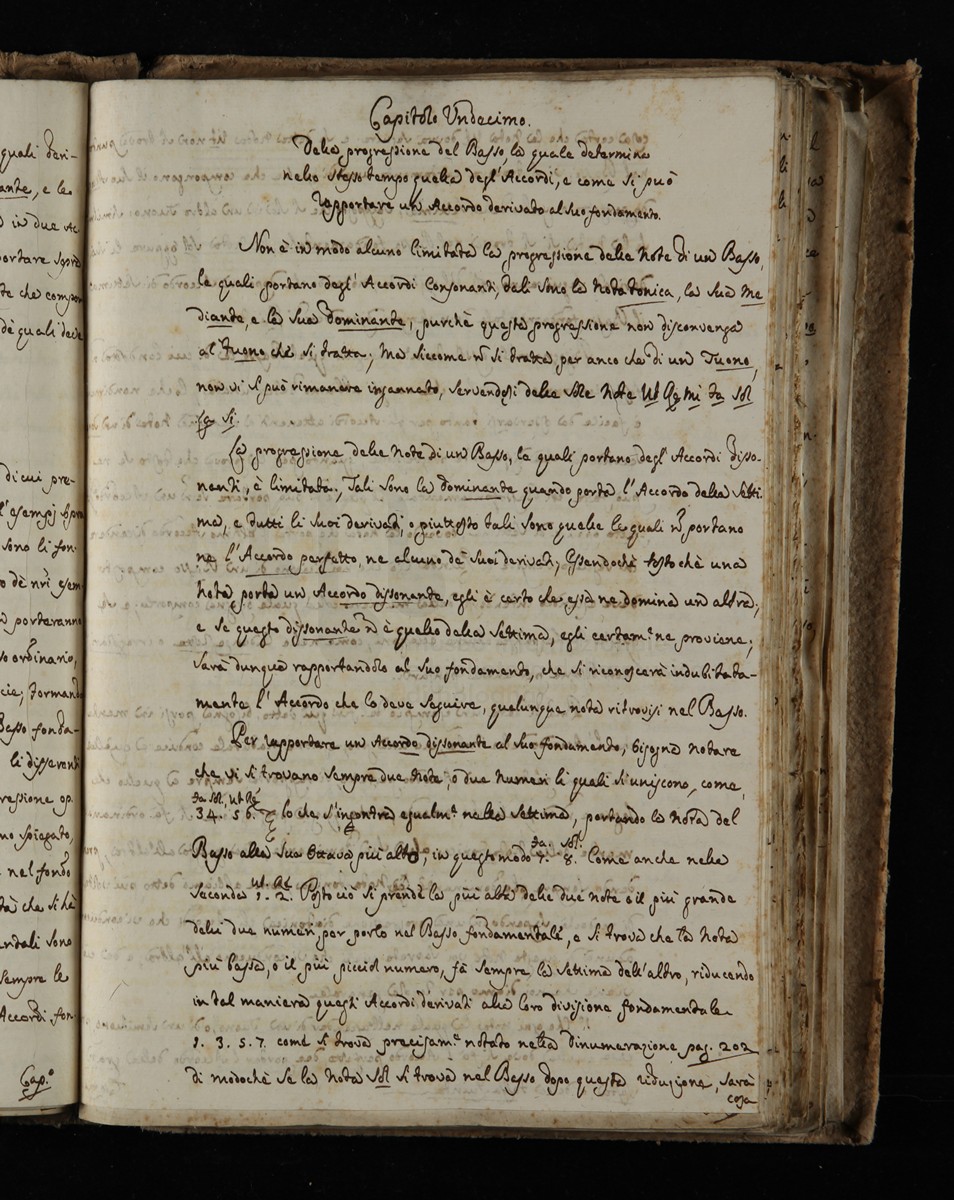 quali deri-
ante, e le
in due Ac
portare sopra
te che compon
dè quali deve
di cui pre-
l'esempj sopra
sono li fon-
o dè nri esem
porteranno
so ordinario,
cie; formando
Basso fonda-
li differenti
ressione op.
no spiegato,
nel fondo
ta che si hà
entali sono
sempre le
Accordi fon-
Cap.º
Capitolo Undecimo.
Della progressione del Basso, la quale determina
nello stesso tempo quella degl'Accordi, e come si può
rapportare un Accordo derivato al suo fondamento.
Non è in modo alcuno limitata la progressione delle Note di un Basso,
le quali portano degl'Accordi Consonanti, tali sono la Nota tonica, la sua Me
diante, e la sua dominante, purchè questa progressione non disconvenga
al Tuono che si tratta; Ma siccome ñ si tratta per anco che di un Tuono,
non vi si può rimanere ingannato, servendosi delle sole Note Ut Re Mi Fa Sol
La Si.
La progressione delle Note di un Basso, le quali portano degl'Accordi disso-
nanti, è limitata; Tali sono la dominante quando porta l'Accordo della Setti
ma, e tutti li suoi derivati; o piutosto tali sono quelle le quali ñ portano
ne l'Accordo perfetto, ne alcuno dè suoi derivati; Essendochè tosto chè una
Nota porta un Accordo dissonante, egli è certo che essa ne domina un altra;
e se questo dissonante ñ è quello della Settima, egli certam.e ne proviene;
sarà dunque rapportandolo al suo fondamento, che si riconoscerà indubitata-
mente l'Accordo che lo deve seguire, qualunque nota ritrovisi nel Basso.
Per rapportare un Accordo dissonante al suo fondamento, bisogna notare
che vi si trovano sempre due Note, ò due numeri li quali si uniscono, come,
Fa Sol, Ut Re
3 4. 5 6. lo che s'incontra egualm.e nella Settima, portando la Nota del
Fa. Sol.
Basso alla sua Ottava più alta; in questo modo 7. 8. Come anche nella
Ut. Re
Seconda 1. 2. Posto ciò si prende la più alta delle due note ò il più grande
delli due numeri per porlo nel Basso fondamentale, e si trova che la Nota
più bassa, ò il più picciol numero, fà sempre la settima dell'altro, riducendo
in tal maniera questi Accordi derivati alla loro divisione fondamentale
1. 3. 5. 7. come si trova precisam.e notato nella Dinumerazione pag. 202
di modochè se la Nota Sol si trova nel Basso dopo questa riduzione, sarà
cosa